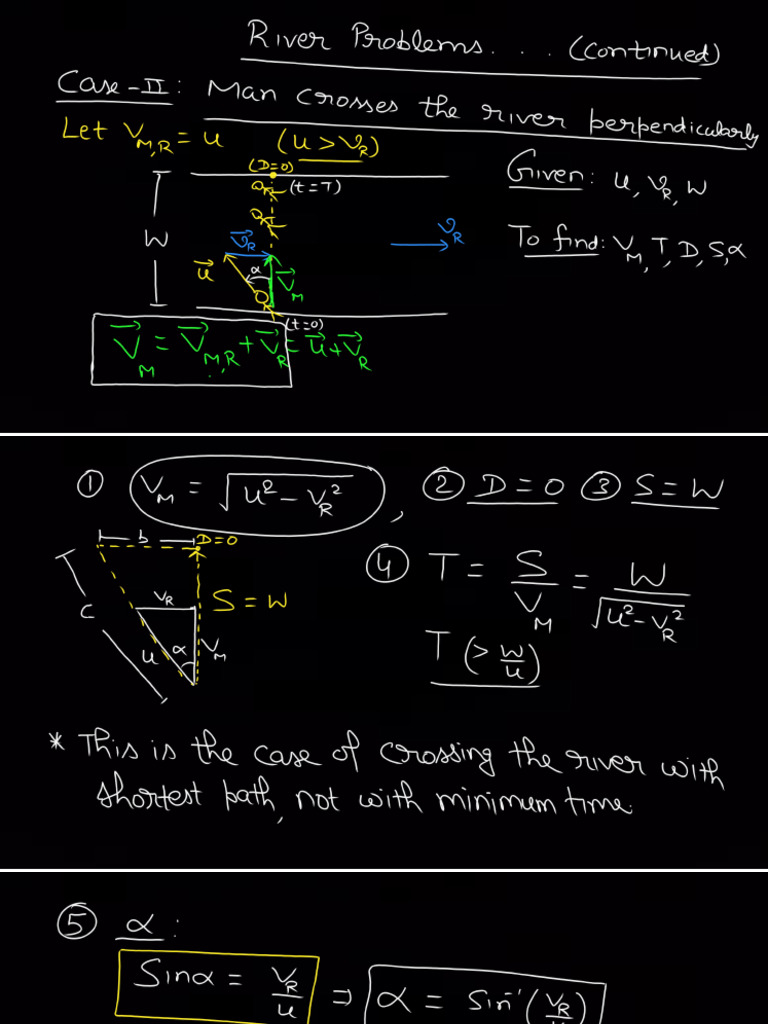 River Problems. . . . (continued)
Case-II: Man crosses the river perpendicularly
Let V_{M,R} = u (u > V_R)
Given: u, V_R, W
To find: V_M, T, D, S, α
(D=0)
(t=T)
W
V_R
\vec{V}_R
\vec{u}
α
\vec{V}_M
(t=0)
\vec{V}_M = \vec{V}_{M,R} + \vec{V}_R = \vec{u} + \vec{V}_R
① V_M = √(u² − V_R²), ② D = 0 ③ S = W
b
D=0
C
V_R
S = W
u
α
V_M
④ T = S/V_M = W/√(u² − V_R²)
T (> W/u)
* This is the case of crossing the river with
shortest path, not with minimum time.
⑤ α :
Sinα = V_R/u ⇒ α = Sin⁻¹(V_R/u)